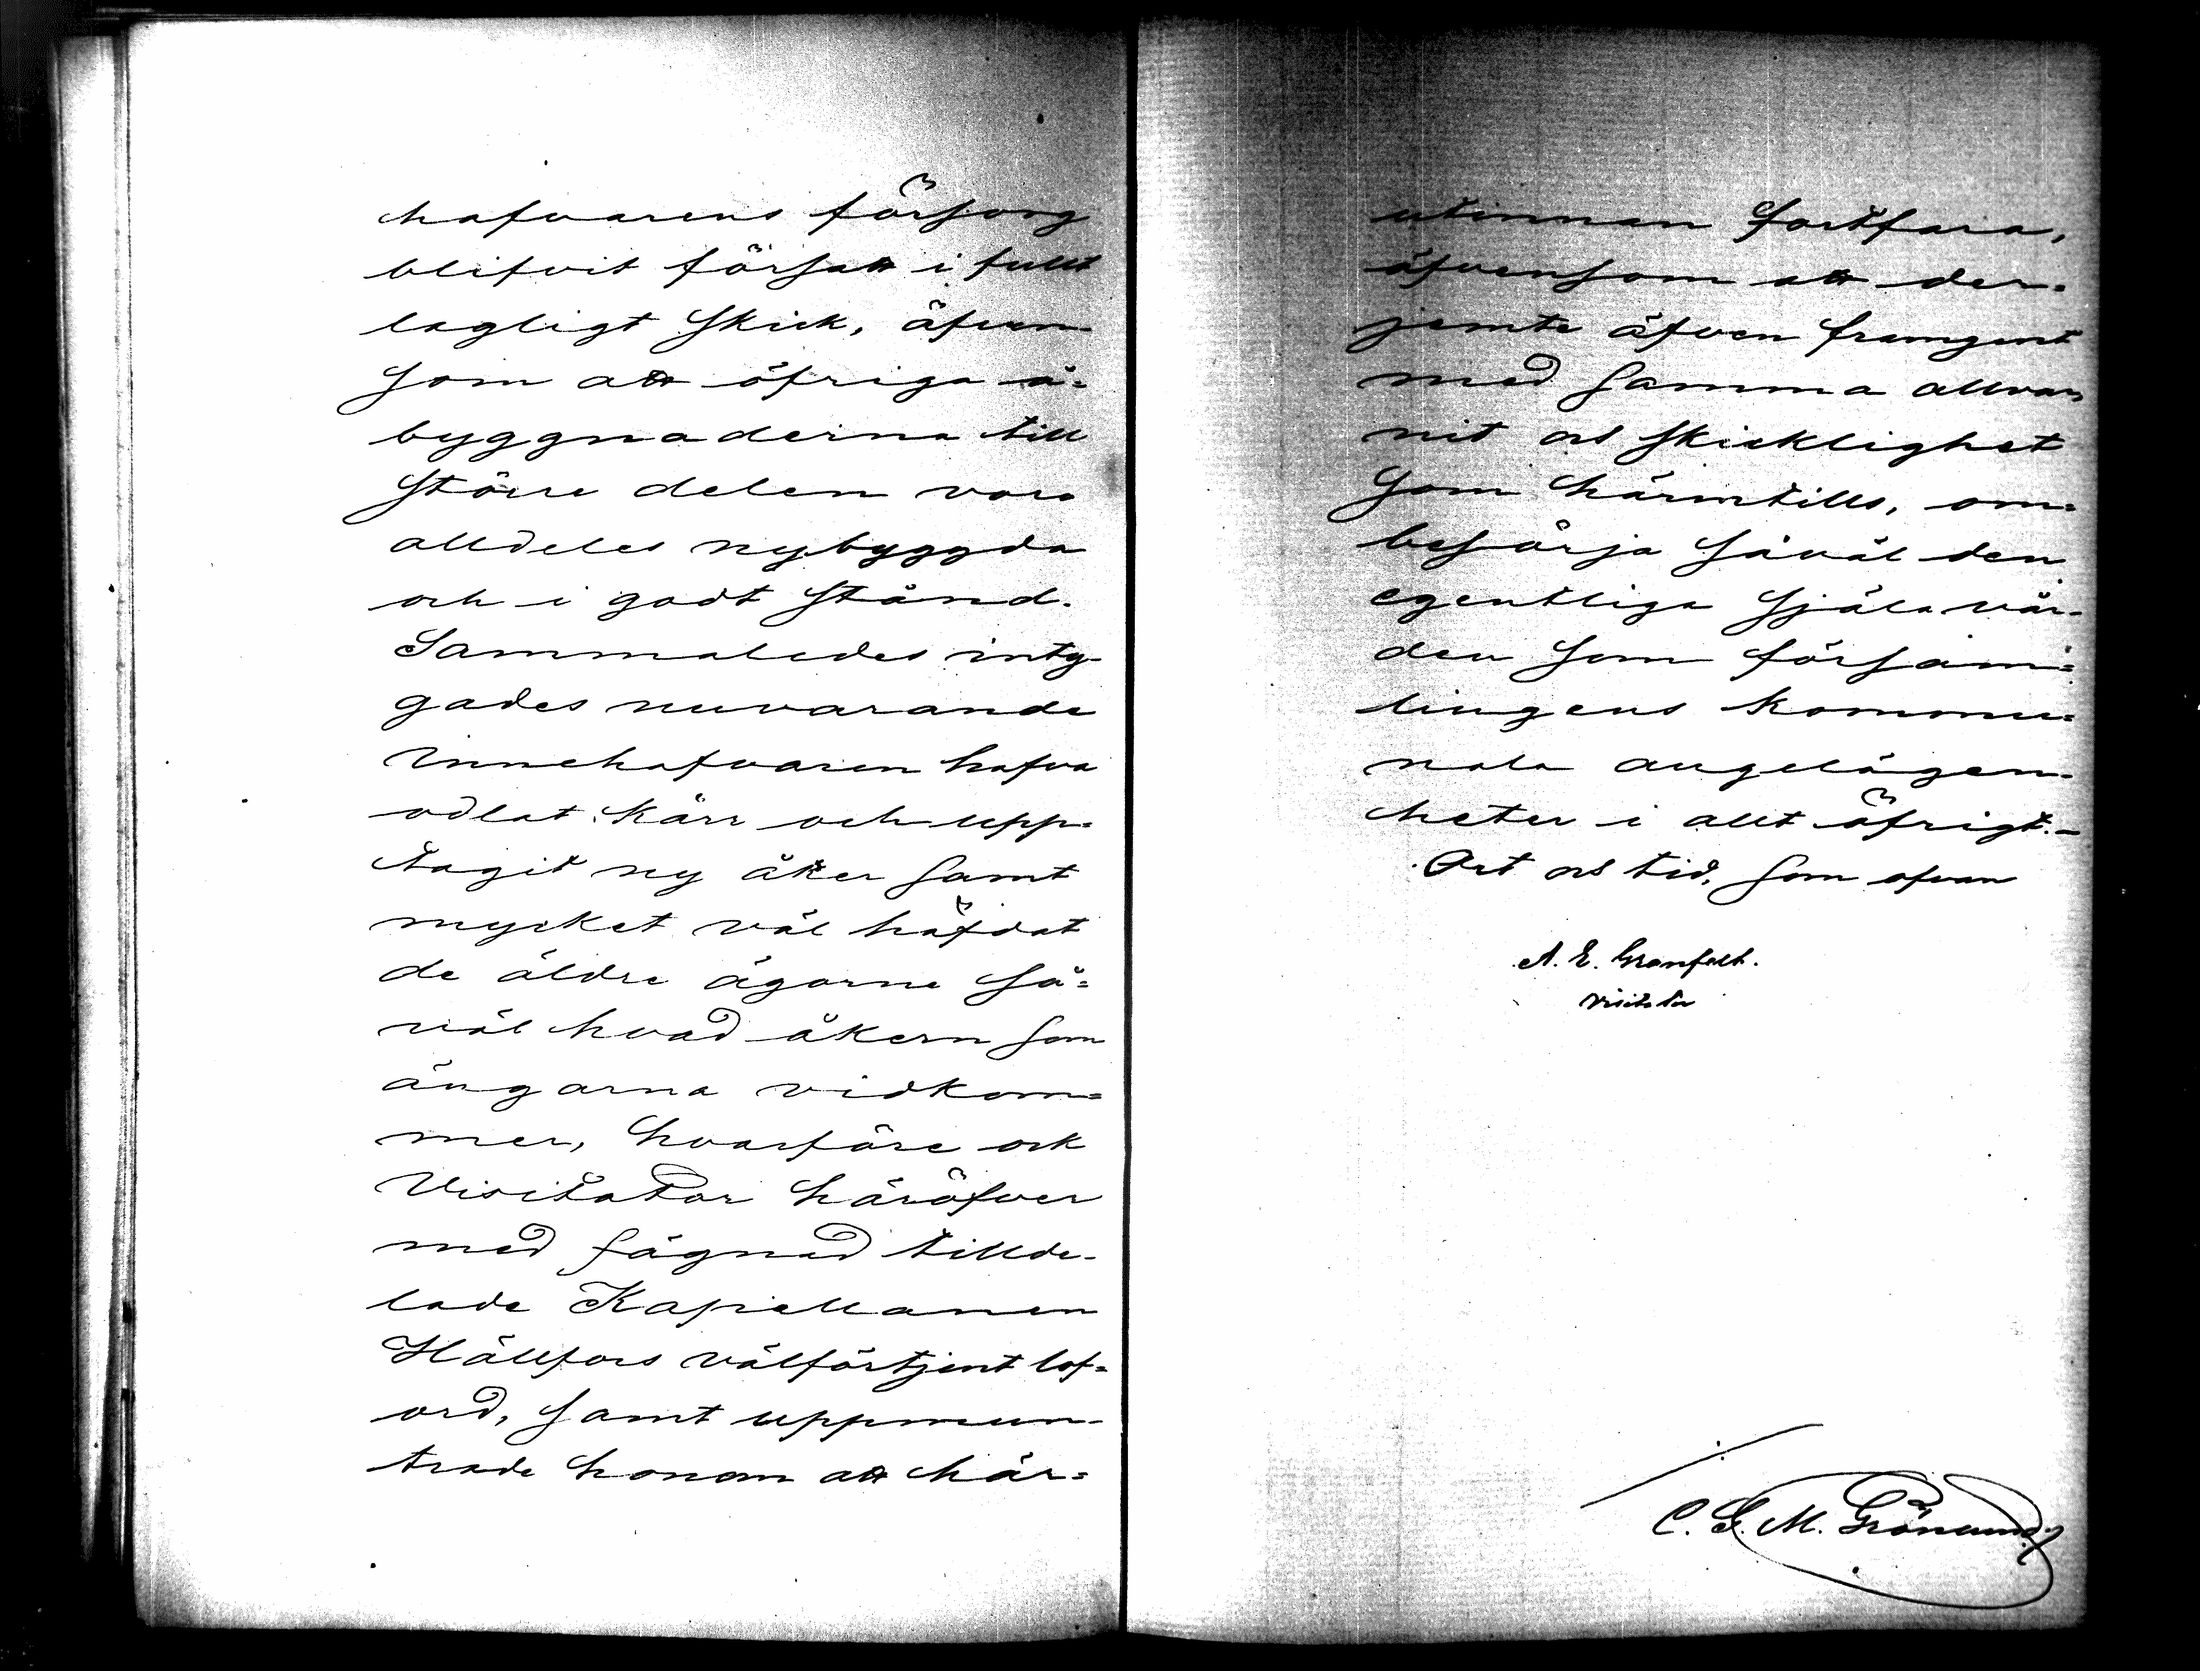 hafvarens försorg
blifvit försatt i fullt
lagligt skick, äfven-
som att öfriga å=
byggnaderna till
större delen voro
alldeles nybyggda
och i godt stånd.
Sammaledes intyg-
gades nuvarande
Innehafvaren hafva
odlat kärr och upp-
tagit ny åker samt
mycket väl häfdat
de äldre ägorne så=
väl hvad åkern som
ängarna vidkom=
mer, hvarföre ock
Visitator häröfver
med fägnad tillde-
lade Kapellanen
Hällfors välförtjent lof=
ord, samt uppmun-
trade honom att här=
utinnan fortfara,
äfvensom att der-
jemte äfven framgent
med samma allvar,
nit och skicklighet
som härintills, om=
besörja såväl den
egentliga själavår-
den som försam=
lingens kommu=
nala angelägen-
heter i allt öfrigt.-
Ort och tid, som ofvan
A. E. Granfelt.
Visitator
C. G. M. Grönlund